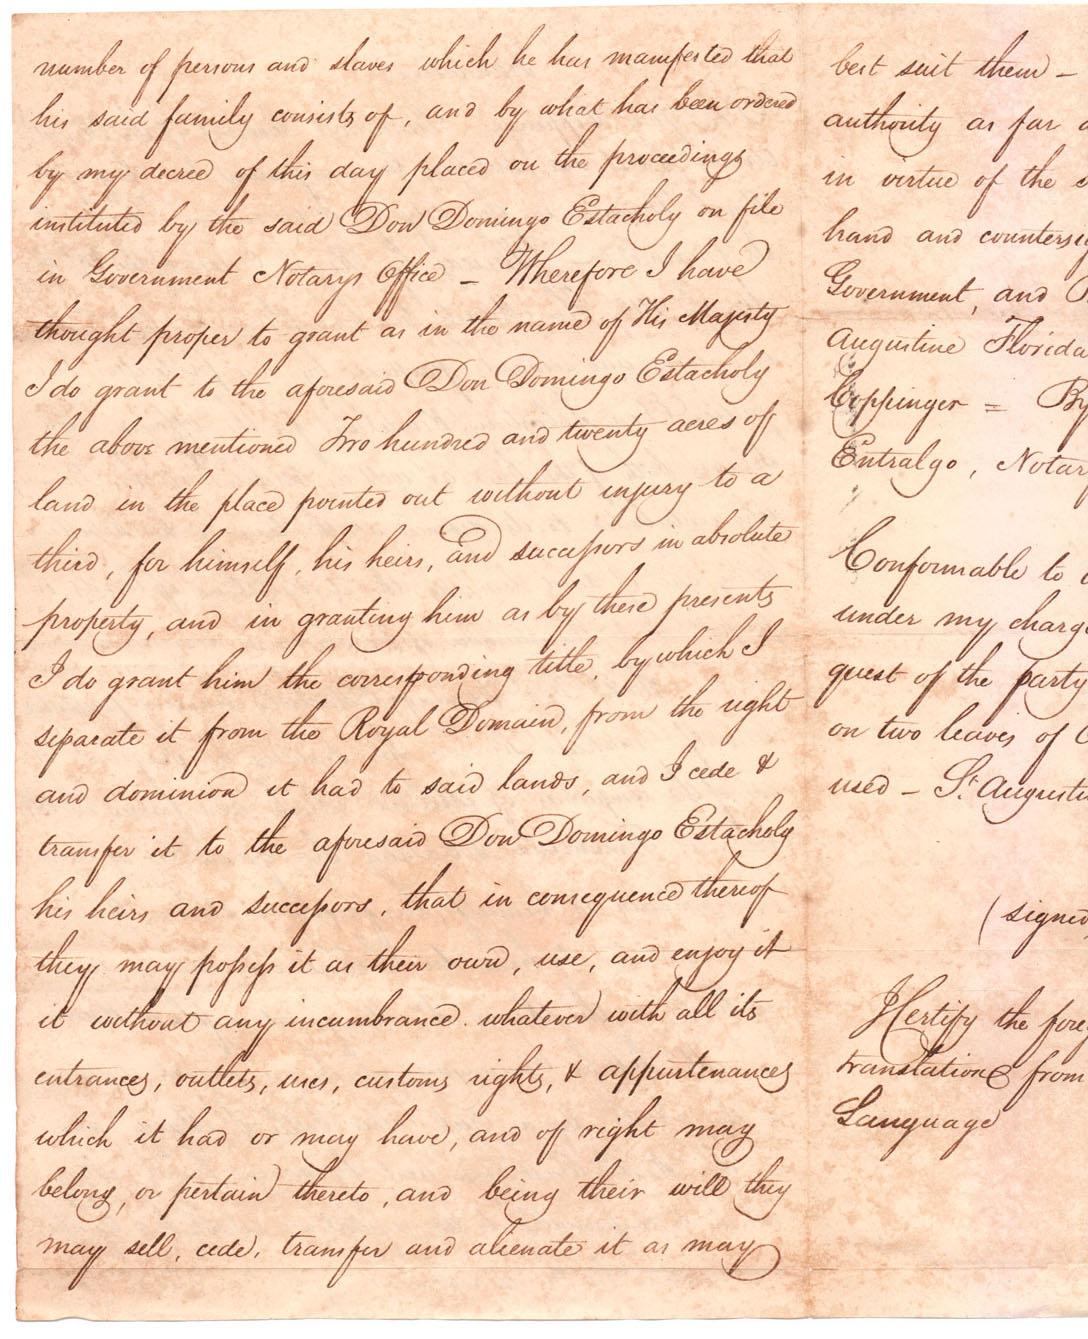 number of persons and slaves which he has manifested that
his said family consists of, and by what has been ordered
by my decree of this day placed on the proceedings
instituted by the said Don Domingo Estacholy on file
in Government Notarys Office – Wherefore I have
thought proper to grant as in the name of His Majesty
I do grant to the aforesaid Don Domingo Estacholy
the above mentioned Two hundred and twenty acres of
land in the place pointed out without injury to a
third, for himself, his heirs, and successors in absolute
property, and in granting him as by these presents
I do grant him the corresponding title, by which I
separate it from the Royal Domain, from the right
and dominion it had to said lands, and I cede &
transfer it to the aforesaid Don Domingo Estacholy
his heirs and successors, that in consequence thereof
they may possess it as their own, use, and enjoy it
it without any incumbrance whatever with all its
entrances, outlets, uses, customs rights, & appurtenances
which it had or may have, and of right may
belong, or pertain thereto, and being their will they
may sell, cede, transfer and alienate it as may
best suit them –
authority as far
in virtue of the
hand and countersig
Government, and
Augustine Florida
Coppinger = By
Entralgo, Notar
Conformable to
under my charge
quest of the party
on two leaves of
used – St. Augusti
(signed
I Certify the fore
translation from
Language